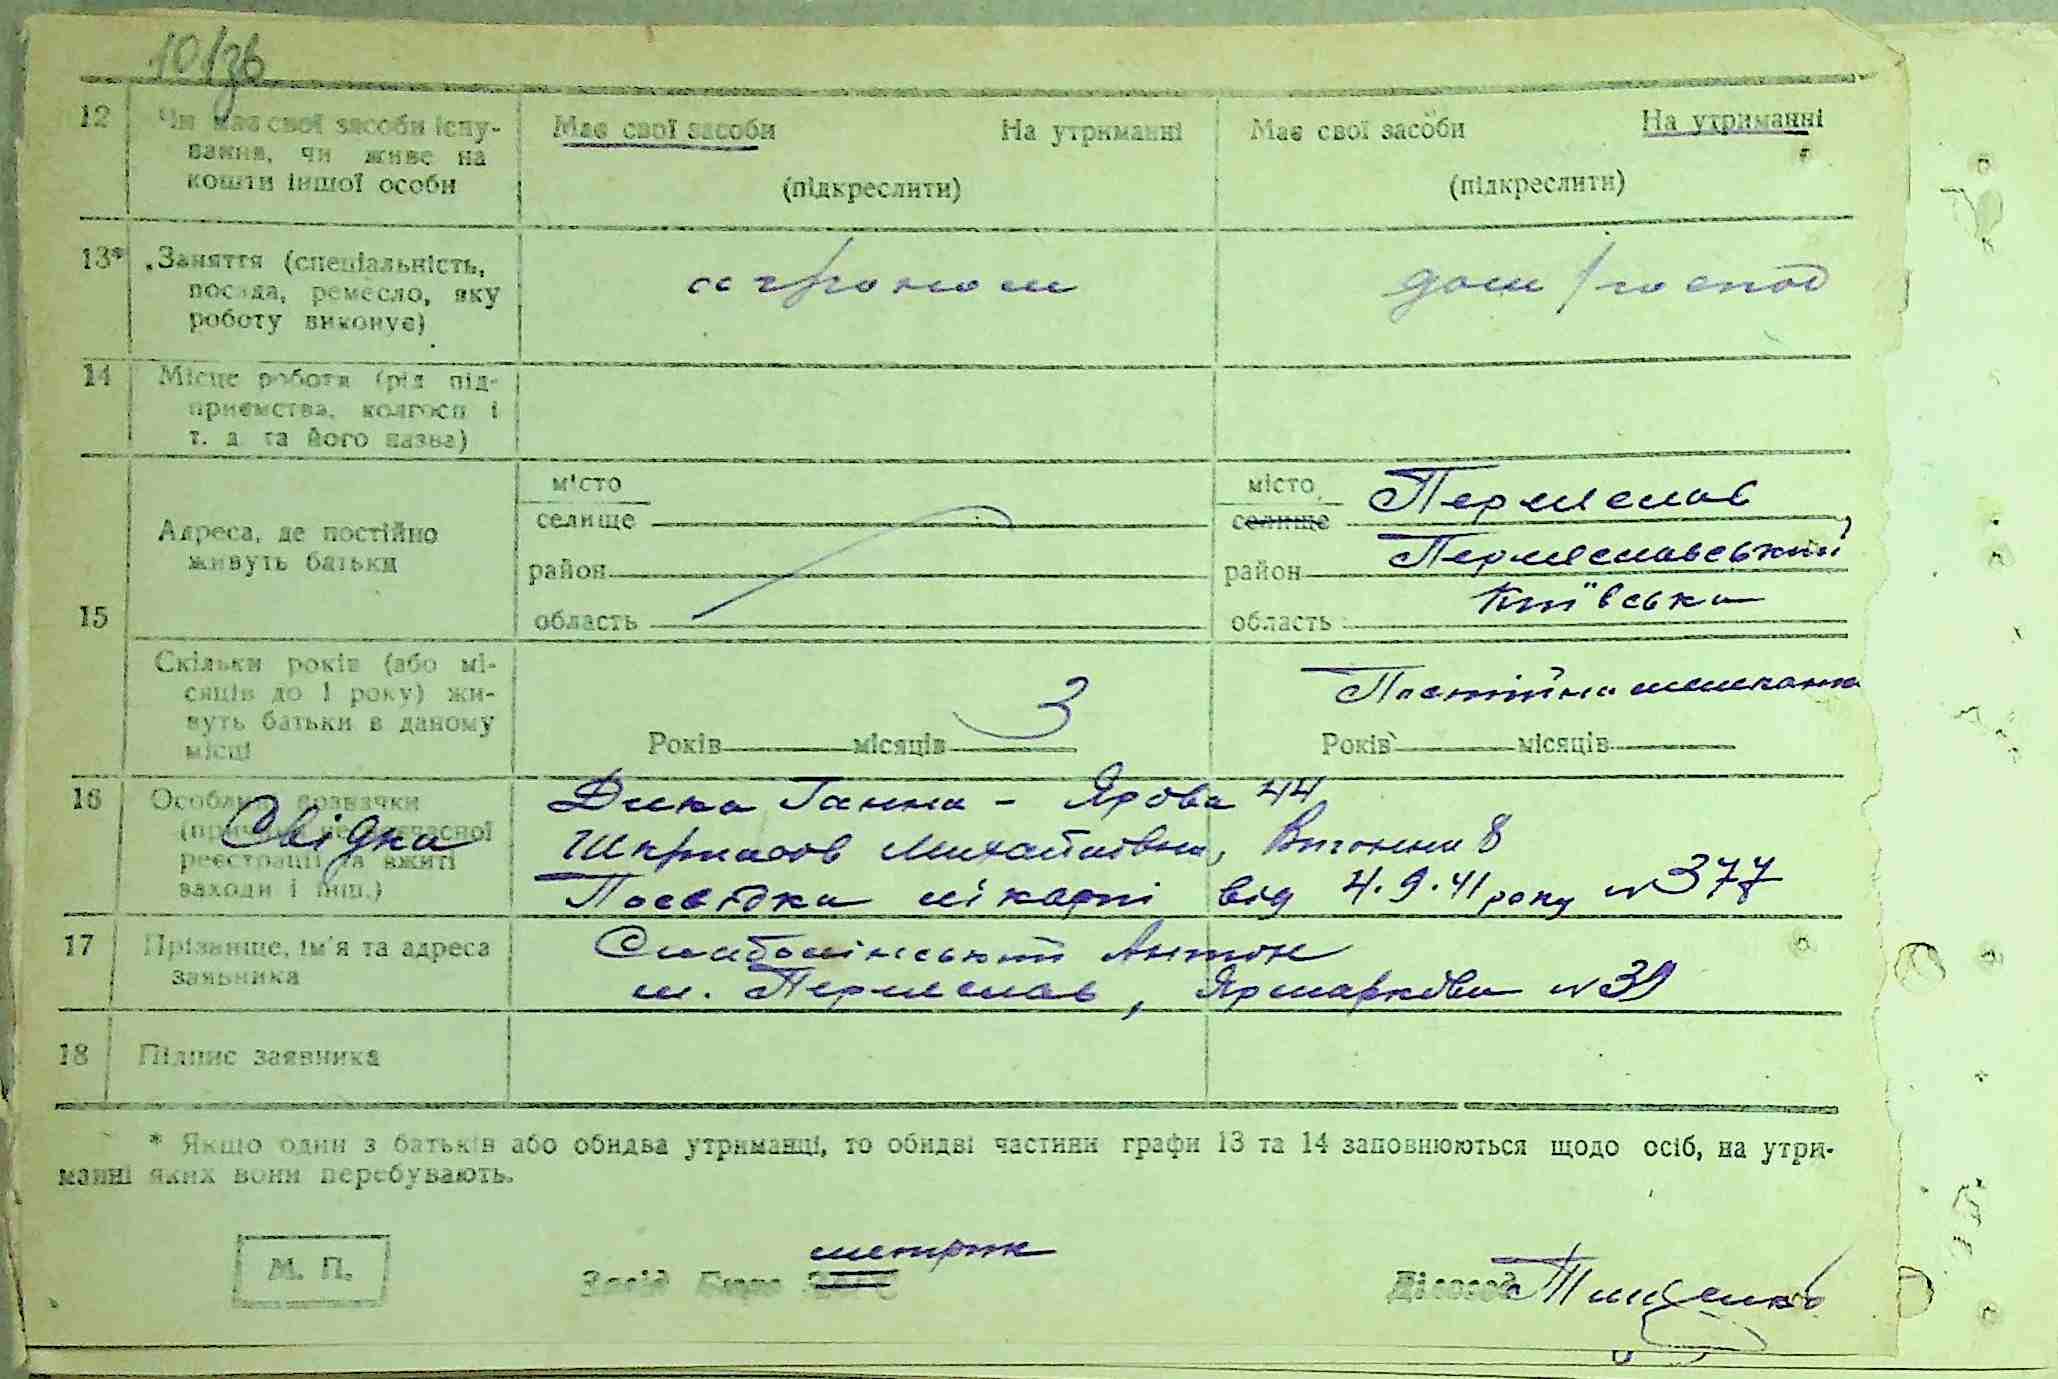 10/зв
12 Чи має свої засоби існу- Має свої засоби На утриманні Має свої засоби На утриманні
вання, чи живе на
кошти іншої особи (підкреслити) (підкреслити)
13* Заняття (спеціальність,
посада, ремесло, яку агроном дом/господ
роботу виконує)
14 Місце роботи (рід під-
приємства, колгосп і
т. д. та його назва)
15 Адреса, де постійно
живуть батьки
місто
селище
район
область
місто Переяслав
селище
район Переяславський
область Київська
Скільки років (або мі-
сяців до 1 року) жи-
вуть батьки в даному
місці
Років місяців 3
Постійна мешканка
Років місяців
16 Особливі позначки
(причини несвоєчасної
реєстрації та вжиті
заходи і інш.)
Свідки
Дика Ганна - Ярова 44
Михайлівна, 8
Посвідка лікарні від 4.9.41 року № 377
17 Прізвище, ім'я та адреса
заявника
Антон
м. Переяслав, Ярмаркова № 39
18 Підпис заявника
* Якщо один з батьків або обидва утриманці, то обидві частини графи 13 та 14 заповнюються щодо осіб, на утри-
манні яких вони перебувають.
метрик
М. П. Завід Бюро ЗАГС Діловод Тищенко